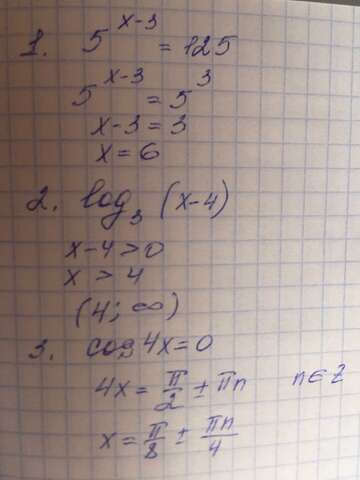 1. 5^(x-3) = 125
5^(x-3) = 5^3
x-3 = 3
x = 6
2. log₃ (x-4)
x-4>0
x > 4
(4; ∞)
3. cos 4x = 0
4x = π/2 ± πn n∈Z
x = π/8 ± πn/4